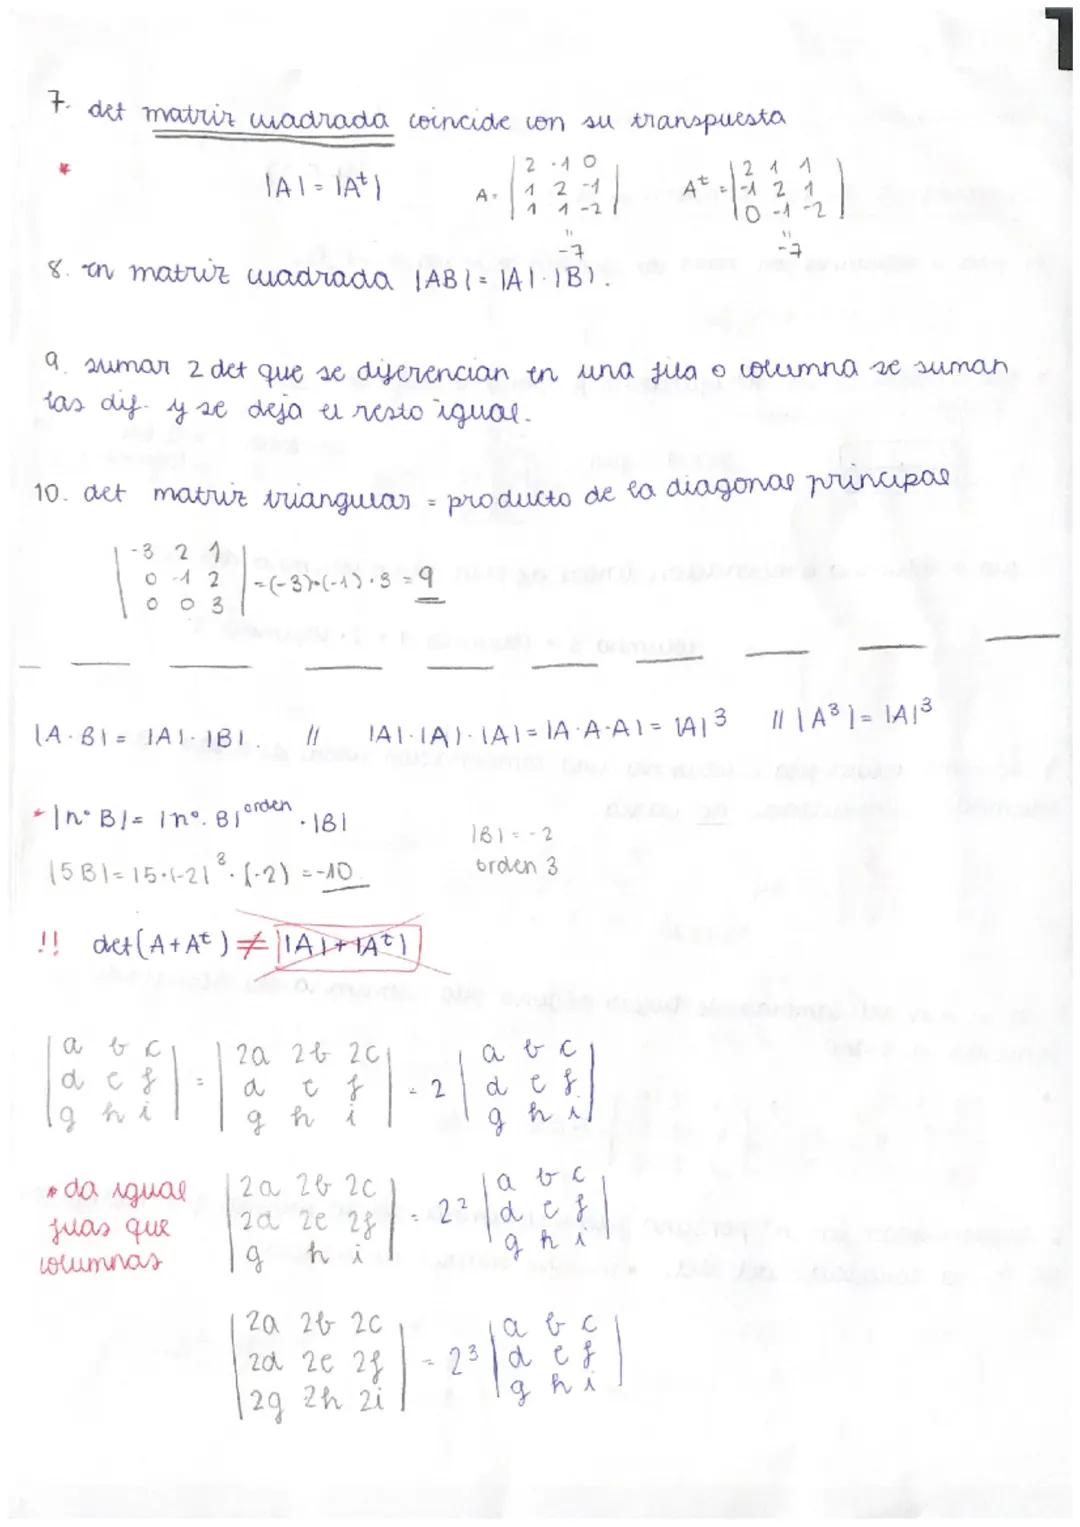 7. det matriz cuadrada coincide con su transpuesta
* |A| = |Aᵗ|
A = | 2 -1 0 |
| 1 2 -1 |
| 1 1 -2 |
"
-7
Aᵗ = | 2 1 1 |
| -1 2 1 |
| 0 -1 -2 |
"
-7
8. en matriz cuadrada |AB| = |A|·|B|.
9. sumar 2 det que se diferencian en una fila o columna se suman
las dif. y se deja el resto igual.
10. det matriz triangular = producto de la diagonal principal
| -3 2 1 |
| 0 -1 2 | = (-3)·(-1)·3 = 9
| 0 0 3 |
|A·B| = |A|·|B|. // |A|·|A|·|A| = |A·A·A| = |A|³ // |A³| = |A|³
* |nº B| = |nº. B|ᵒʳᵈᵉⁿ · |B|
|B| = -2
|5B| = 15·(-2|³·(-2) = -10
orden 3
!! det(A+Aᵗ) ≠ |A|+|Aᵗ|
| a b c | = | 2a 2b 2c | = 2 | a b c |
| d e f | | d e f | | d e f |
| g h i | | g h i | | g h i |
* da igual
filas que
columnas
| 2a 2b 2c | = 2² | a b c |
| 2d 2e 2f | | d e f |
| g h i | | g h i |
| 2a 2b 2c | = 2³ | a b c |
| 2d 2e 2f | | d e f |
| 2g 2h 2i | | g h i |